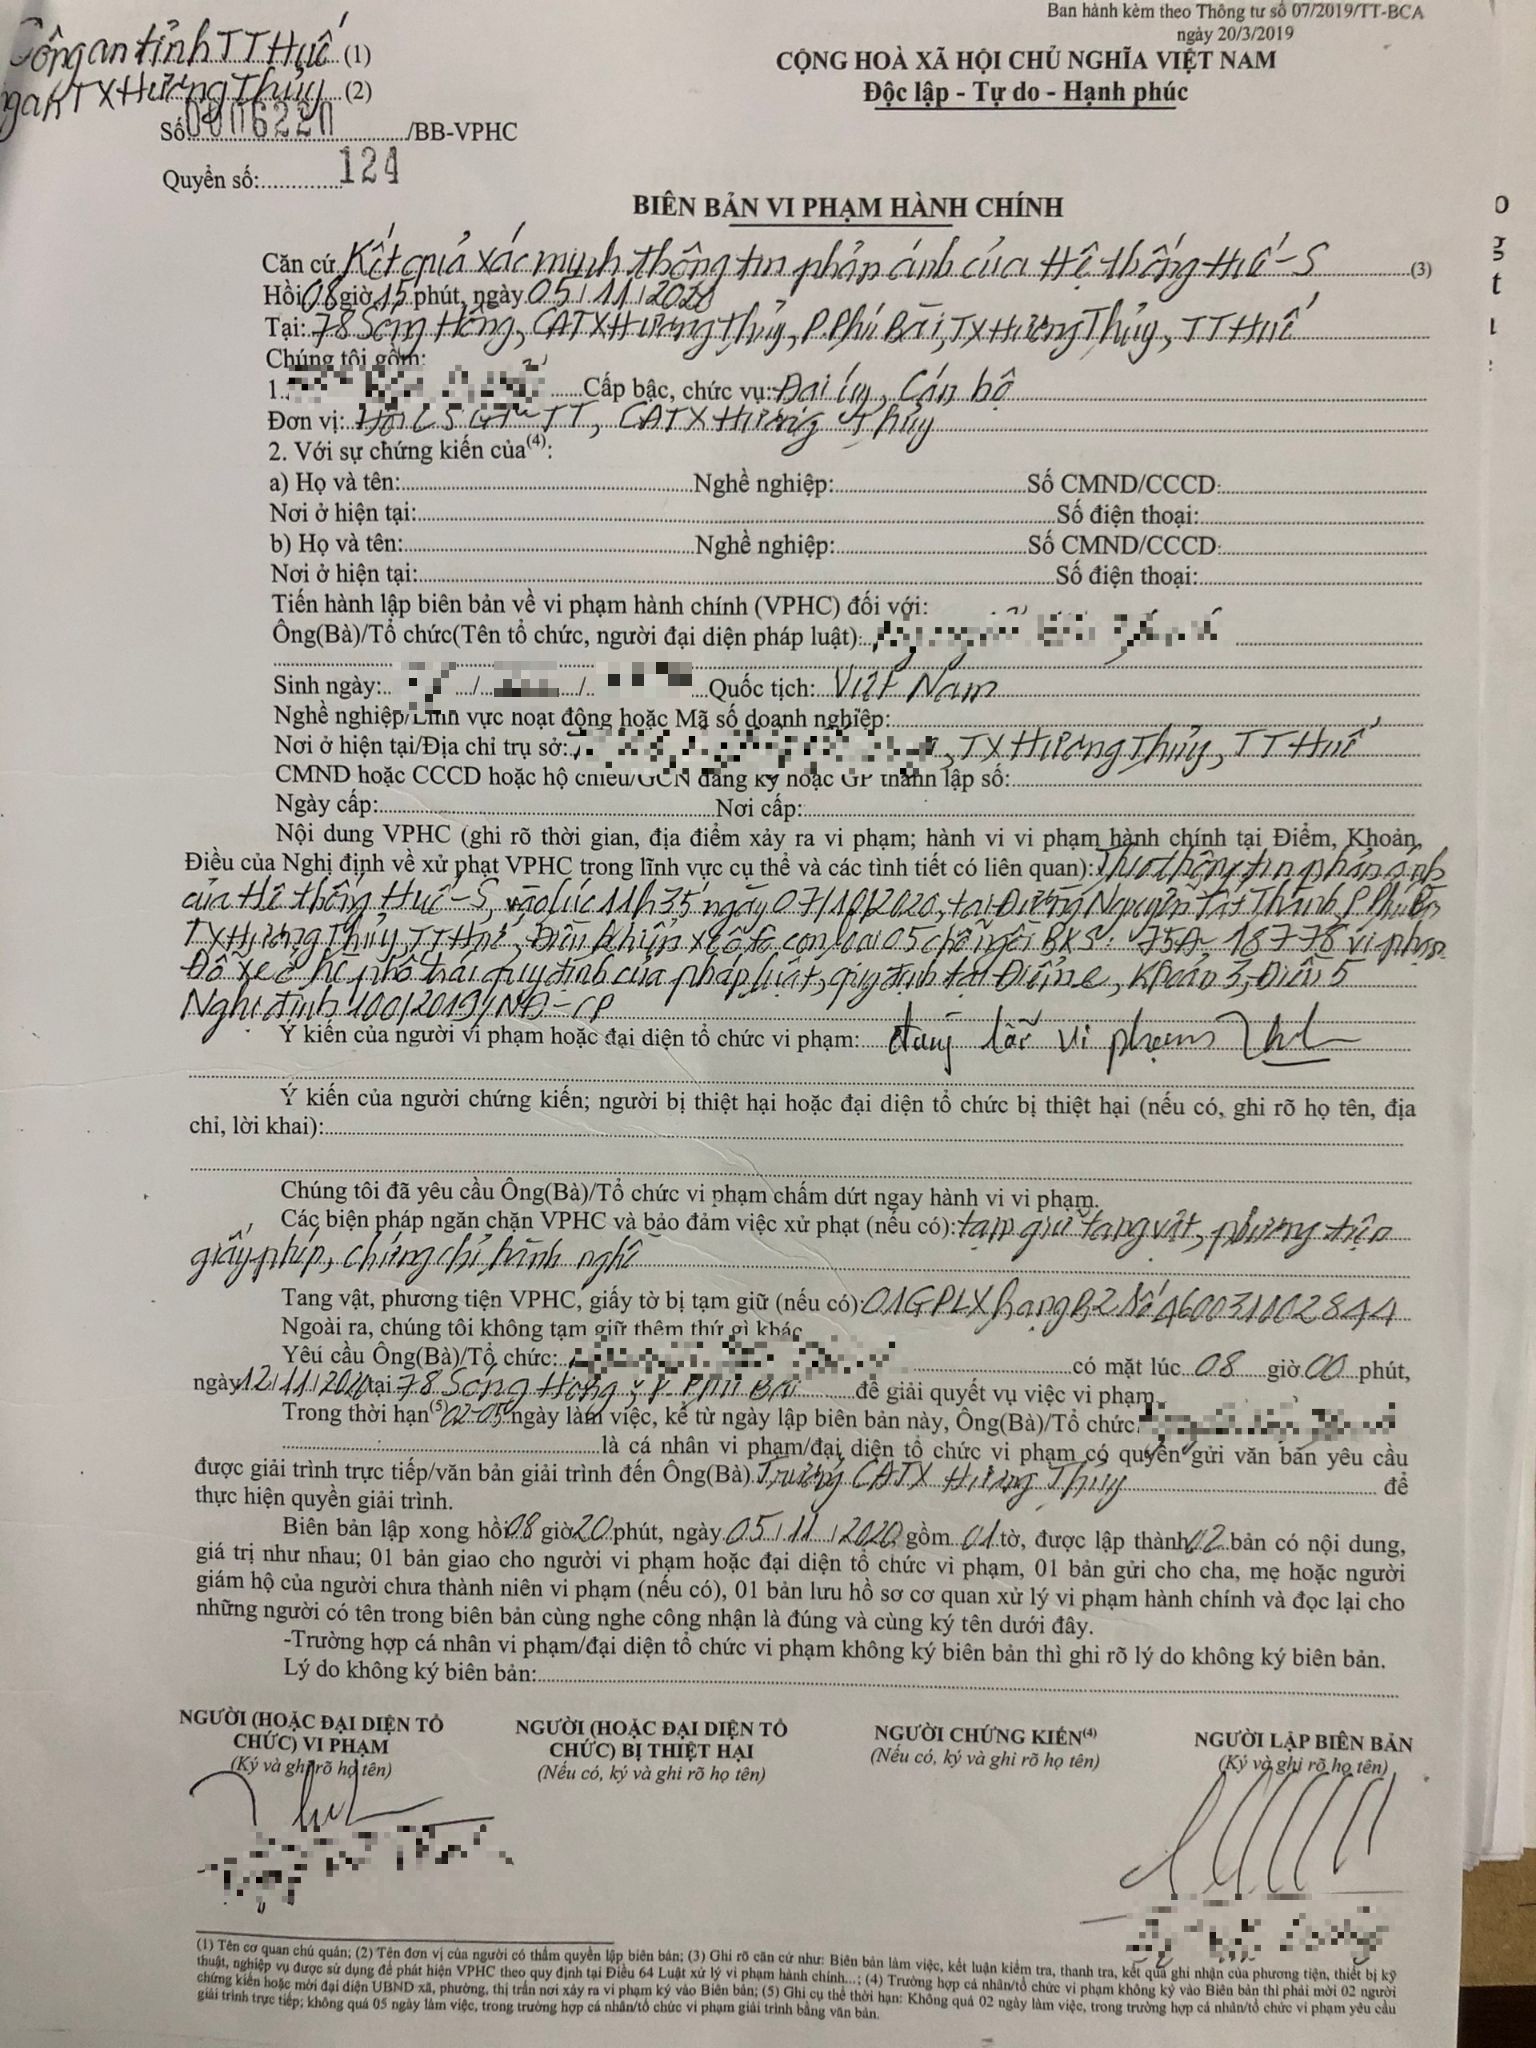 Ban hành kèm theo Thông tư số 07/2019/TT-BCA
ngày 20/3/2019
Công an tỉnh TT Huế (1)
TX Hương Thủy (2)
Số 0006220 /BB-VPHC
Quyển số: 124
CỘNG HOÀ XÃ HỘI CHỦ NGHĨA VIỆT NAM
Độc lập - Tự do - Hạnh phúc
BIÊN BẢN VI PHẠM HÀNH CHÍNH
Căn cứ Kết quả xác minh thông tin phản ánh của Hệ thống Huế-S (3)
Hồi 08 giờ 15 phút, ngày 05/11/2020
Tại: 78 Sóng Hồng, CATX Hương Thủy, P. Phú Bài, TX Hương Thủy, TT Huế
Chúng tôi gồm:
1. Cấp bậc, chức vụ: Đại úy, Cán bộ
Đơn vị: Đội CSGT-TT, CATX Hương Thủy
2. Với sự chứng kiến của(4):
a) Họ và tên: Nghề nghiệp: Số CMND/CCCD:
Nơi ở hiện tại: Số điện thoại:
b) Họ và tên: Nghề nghiệp: Số CMND/CCCD:
Nơi ở hiện tại: Số điện thoại:
Tiến hành lập biên bản về vi phạm hành chính (VPHC) đối với:
Ông(Bà)/Tổ chức(Tên tổ chức, người đại diện pháp luật):
Sinh ngày: / / Quốc tịch: Việt Nam
Nghề nghiệp/Lĩnh vực hoạt động hoặc Mã số doanh nghiệp:
Nơi ở hiện tại/Địa chỉ trụ sở: , TX Hương Thủy, TT Huế
CMND hoặc CCCD hoặc hộ chiếu/GCN đăng ký hoặc GP thành lập số:
Ngày cấp: Nơi cấp:
Nội dung VPHC (ghi rõ thời gian, địa điểm xảy ra vi phạm; hành vi vi phạm hành chính tại Điểm, Khoản,
Điều của Nghị định về xử phạt VPHC trong lĩnh vực cụ thể và các tình tiết có liên quan): Theo thông tin phản ánh
của Hệ thống Huế-S, vào lúc 11h35 ngày 07/10/2020, tại Đường Nguyễn Tất Thành, P. Phú Bài
TX Hương Thủy, TT Huế, Điều khiển xe ô tô con loại 05 chỗ ngồi BKS: 75A-18778 vi phạm
Đỗ xe ở hè phố trái quy định của pháp luật, quy định tại Điểm e, Khoản 3, Điều 5
Nghị định 100/2019/NĐ-CP
Ý kiến của người vi phạm hoặc đại diện tổ chức vi phạm: đúng lỗi vi phạm
Ý kiến của người chứng kiến; người bị thiệt hại hoặc đại diện tổ chức bị thiệt hại (nếu có, ghi rõ họ tên, địa
chỉ, lời khai):
Chúng tôi đã yêu cầu Ông(Bà)/Tổ chức vi phạm chấm dứt ngay hành vi vi phạm.
Các biện pháp ngăn chặn VPHC và bảo đảm việc xử phạt (nếu có): tạm giữ tang vật, phương tiện
giấy phép, chứng chỉ hành nghề
Tang vật, phương tiện VPHC, giấy tờ bị tạm giữ (nếu có): 01 GPLX hạng B2 số 460031002844
Ngoài ra, chúng tôi không tạm giữ thêm thứ gì khác
Yêu cầu Ông(Bà)/Tổ chức: có mặt lúc 08 giờ 00 phút,
ngày 12/11/2020 tại 78 Sóng Hồng, P. Phú Bài để giải quyết vụ việc vi phạm
Trong thời hạn(5) 02-05 ngày làm việc, kể từ ngày lập biên bản này, Ông(Bà)/Tổ chức
là cá nhân vi phạm/đại diện tổ chức vi phạm có quyền gửi văn bản yêu cầu
được giải trình trực tiếp/văn bản giải trình đến Ông(Bà) Trưởng CATX Hương Thủy để
thực hiện quyền giải trình.
Biên bản lập xong hồi 08 giờ 20 phút, ngày 05/11/2020, gồm 01 tờ, được lập thành 02 bản có nội dung,
giá trị như nhau; 01 bản giao cho người vi phạm hoặc đại diện tổ chức vi phạm, 01 bản gửi cho cha, mẹ hoặc người
giám hộ của người chưa thành niên vi phạm (nếu có), 01 bản lưu hồ sơ cơ quan xử lý vi phạm hành chính và đọc lại cho
những người có tên trong biên bản cùng nghe công nhận là đúng và cùng ký tên dưới đây.
-Trường hợp cá nhân vi phạm/đại diện tổ chức vi phạm không ký biên bản thì ghi rõ lý do không ký biên bản.
Lý do không ký biên bản:
NGƯỜI (HOẶC ĐẠI DIỆN TỔ
CHỨC) VI PHẠM
(Ký và ghi rõ họ tên)
NGƯỜI (HOẶC ĐẠI DIỆN TỔ
CHỨC) BỊ THIỆT HẠI
(Nếu có, ký và ghi rõ họ tên)
NGƯỜI CHỨNG KIẾN(4)
(Nếu có, ký và ghi rõ họ tên)
NGƯỜI LẬP BIÊN BẢN
(Ký và ghi rõ họ tên)
(1) Tên cơ quan chủ quản; (2) Tên đơn vị của người có thẩm quyền lập biên bản; (3) Ghi rõ căn cứ như: Biên bản làm việc, kết luận kiểm tra, thanh tra, kết quả ghi nhận của phương tiện, thiết bị kỹ
thuật, nghiệp vụ được sử dụng để phát hiện VPHC theo quy định tại Điều 64 Luật xử lý vi phạm hành chính...; (4) Trường hợp cá nhân/tổ chức vi phạm không ký vào Biên bản thì phải mời 02 người
chứng kiến hoặc mời đại diện UBND xã, phường, thị trấn nơi xảy ra vi phạm ký vào Biên bản; (5) Ghi cụ thể thời hạn: Không quá 02 ngày làm việc, trong trường hợp cá nhân/tổ chức vi phạm yêu cầu
giải trình trực tiếp; không quá 05 ngày làm việc, trong trường hợp cá nhân/tổ chức vi phạm giải trình bằng văn bản.